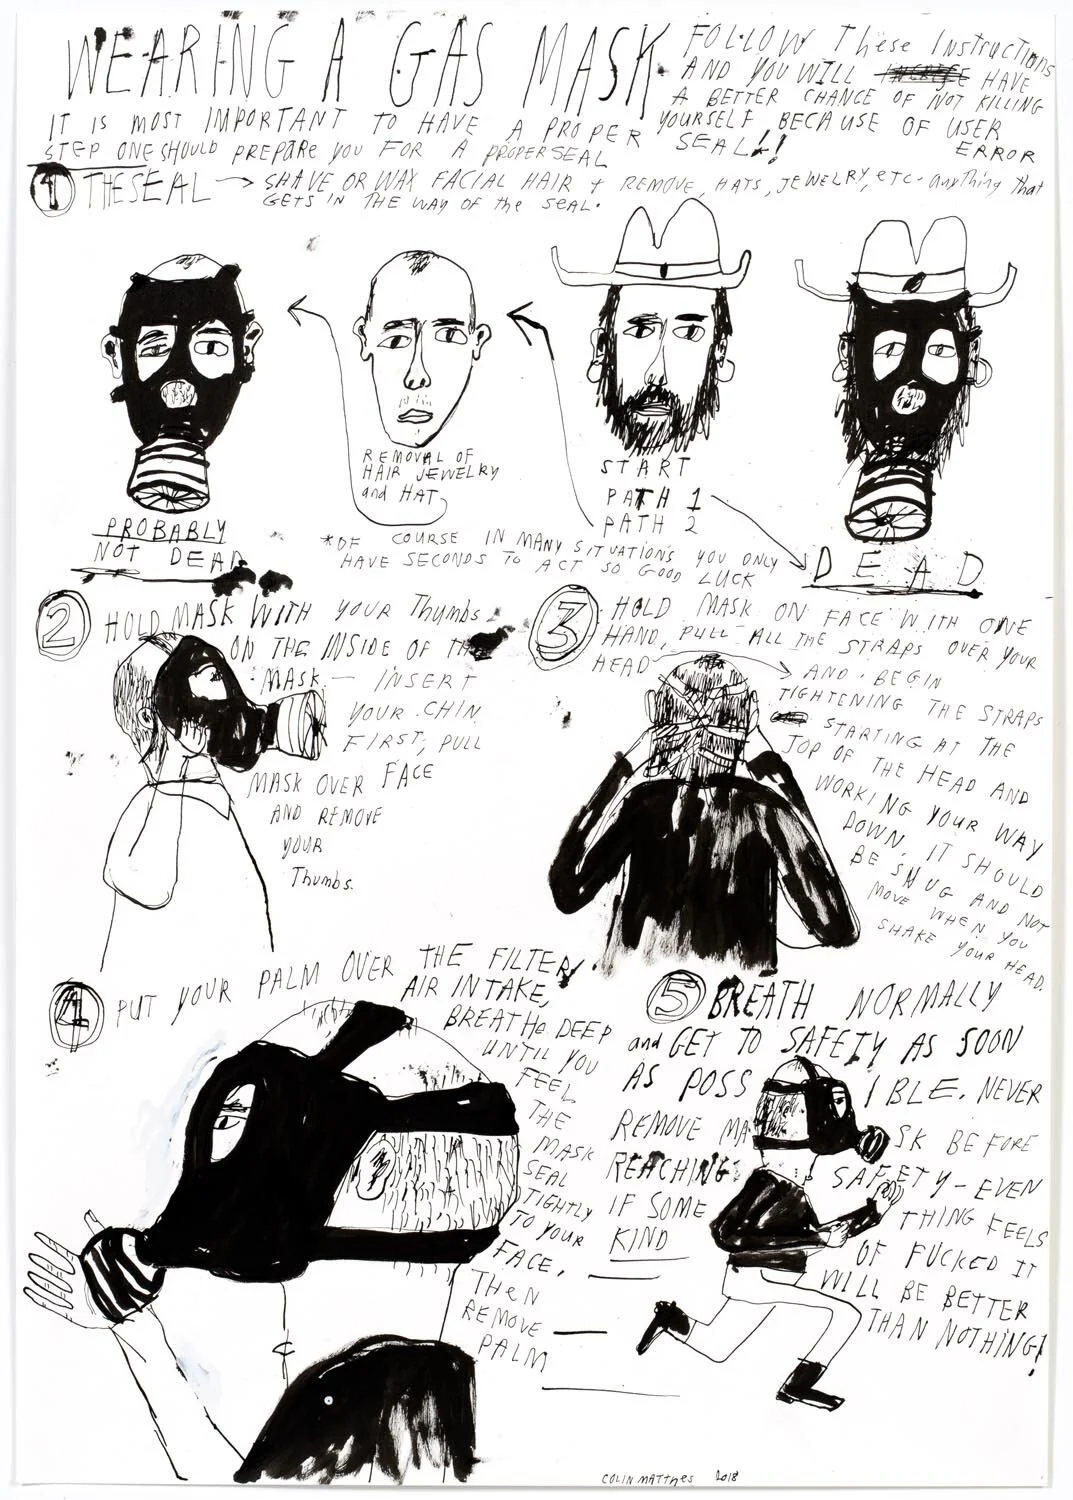 WEARING A GAS MASK
FOLLOW These Instructions
AND YOU WILL HAVE
A BETTER CHANCE OF NOT KILLING
YOURSELF BECAUSE OF USER
ERROR
IT IS MOST IMPORTANT TO HAVE A PROPER SEAL!!
STEP ONE SHOULD PREPARE YOU FOR A PROPER SEAL
1 THE SEAL → SHAVE OR WAX FACIAL HAIR + REMOVE, HATS, JEWELRY, etc- anything that
GETS IN THE WAY OF the SEAL.
REMOVAL OF
HAIR JEWELRY
and HAT
START
PATH 1
PATH 2
PROBABLY
NOT DEAD
*OF COURSE IN MANY SITUATIONS YOU ONLY
HAVE SECONDS TO ACT SO GOOD LUCK
DEAD
2 HOLD MASK WITH YOUR Thumbs
ON THE INSIDE OF THE
MASK - INSERT
YOUR CHIN
FIRST, PULL
MASK OVER FACE
AND REMOVE
YOUR
Thumbs.
3 HOLD MASK ON FACE WITH ONE
HAND, PULL ALL THE STRAPS OVER YOUR
HEAD → AND BEGIN
TIGHTENING THE STRAPS
STARTING AT THE
TOP OF THE HEAD AND
WORKING YOUR WAY
DOWN. IT SHOULD
BE SNUG AND NOT
MOVE WHEN YOU
SHAKE YOUR HEAD.
4 PUT YOUR PALM OVER THE FILTER/
AIR INTAKE,
BREATHe DEEP
UNTIL YOU
FEEL
THE
MASK
SEAL
TIGHTLY
TO YOUR
FACE,
THEN
REMOVE
PALM
5 BREATH NORMALLY
and GET TO SAFETY AS SOON
AS POSSIBLE. NEVER
REMOVE MASK BEFORE
REACHING SAFETY - EVEN
IF SOME THING FEELS
KIND OF FUCKED IT
WILL BE BETTER
THAN NOTHING!
COLIN MATTHES 2018